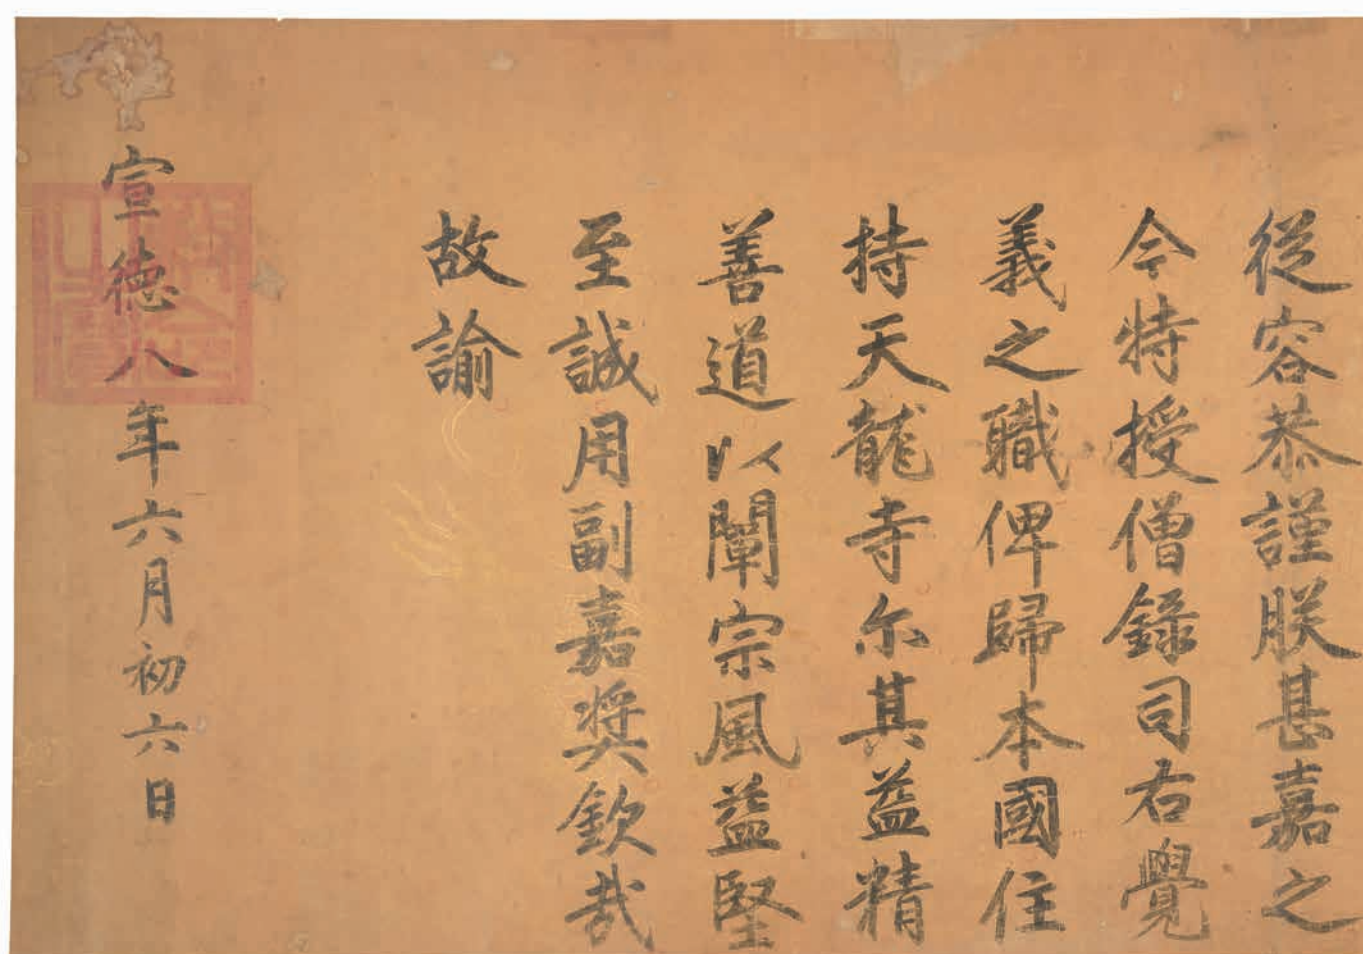 從容恭謹朕甚嘉之
今特授僧錄司右覺
義之職俾歸本國住
持天龍寺尔其益精
善道以闡宗風益堅
至誠用副嘉奨欽哉
故諭
宣德八年六月初六日